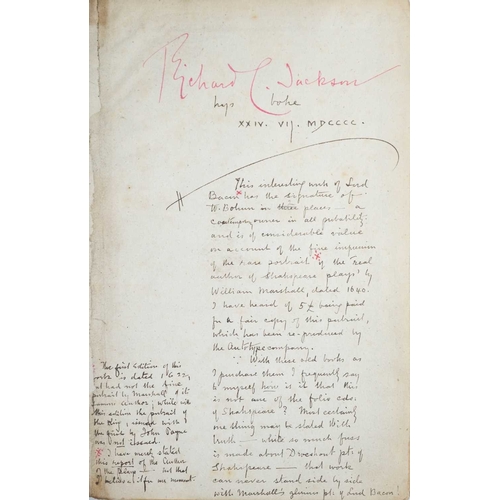 Richard C. Jackson
hys boke
XXIV. VIJ. MDCCCC.
This interesting work of Lord
Bacon has the signature of
W. Bohun in three places — a
owner in all probability:
and is of considerable value
on account of the fine impression
of the rare portrait of the 'real
author of Shakspeare plays' by
William Marshall, dated 1640.
I have heard of 5£ being paid
for a fair copy of this portrait,
which has been re-produced by
the Autotype company.
With these old books as
I purchase them I frequently say
to myself how is it that this
is not one of the folio eds.
of Shakspeare? Most certainly
one thing may be stated with
truth — while so much fuss
is made about Droeshout pt. of
Shakspeare — that work
can never stand side by side
with Marshall's glorious pt. of Lord Bacon!
The first Edition of this
work is dated 1622,
had not the fine
portrait by Marshall of its
famous author; while with
this edition the portrait of
the King,
by John Payne
was not issued.
I have merely stated
this report of the Author
of the plays — not that
I believe it for one moment.